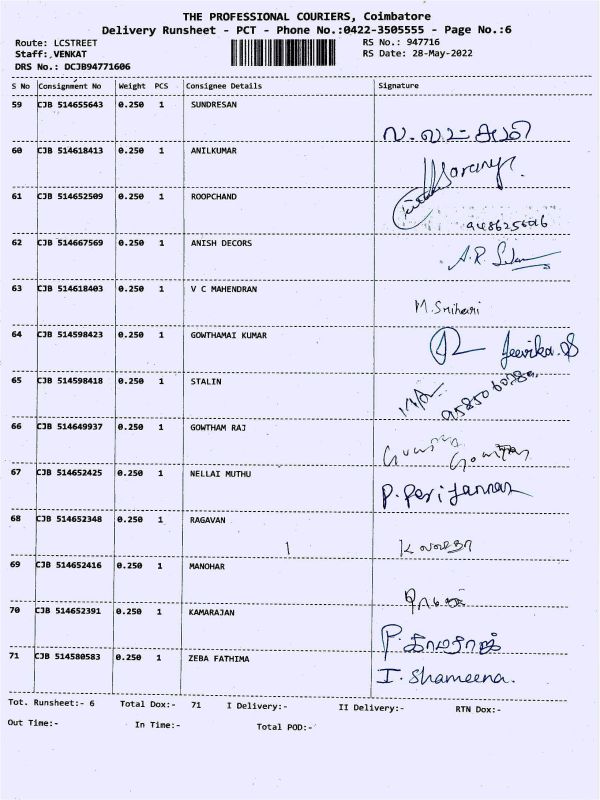 THE PROFESSIONAL COURIERS, Coimbatore
Delivery Runsheet - PCT - Phone No.:0422-3505555 - Page No.:6
Route: LCSTREET RS No.: 947716
Staff:,VENKAT RS Date: 28-May-2022
DRS No.: DCJB94771606
S No Consignment No Weight PCS Consignee Details Signature
59 CJB 514655643 0.250 1 SUNDRESAN
60 CJB 514618413 0.250 1 ANILKUMAR
61 CJB 514652509 0.250 1 ROOPCHAND
62 CJB 514667569 0.250 1 ANISH DECORS
A.R.
63 CJB 514618403 0.250 1 V C MAHENDRAN
M. Srihari
64 CJB 514598423 0.250 1 GOWTHAMAI KUMAR
Jeevika.S
65 CJB 514598418 0.250 1 STALIN
66 CJB 514649937 0.250 1 GOWTHAM RAJ
67 CJB 514652425 0.250 1 NELLAI MUTHU
68 CJB 514652348 0.250 1 RAGAVAN
69 CJB 514652416 0.250 1 MANOHAR
70 CJB 514652391 0.250 1 KAMARAJAN
P. காமராஜ்
71 CJB 514580583 0.250 1 ZEBA FATHIMA
I. Shameena.
Tot. Runsheet:- 6 Total Dox:- 71 I Delivery:- II Delivery:- RTN Dox:-
Out Time:- In Time:- Total POD:-